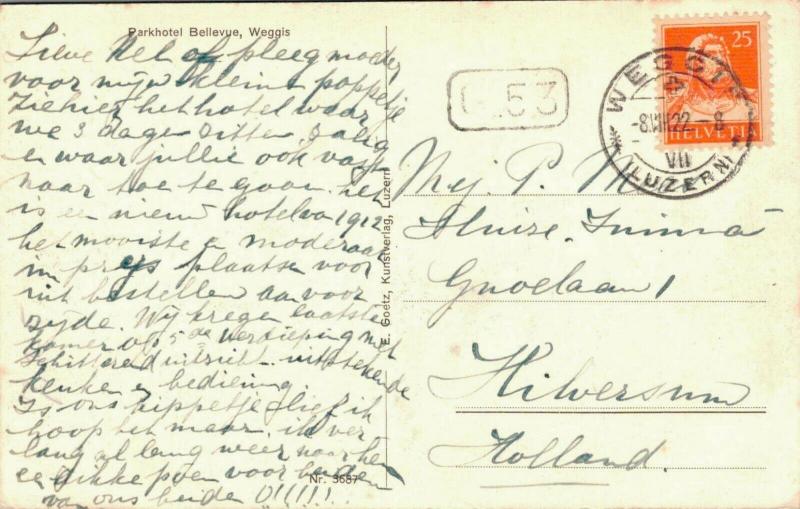 Parkhotel Bellevue, Weggis
Lieve Nel of pleegmoeder
voor mijn kleine poppetje
Ziehier het hotel waar
we 3 dagen zitten. Zalig
en waar jullie ook vast
naar toe te gaan. Het
is een nieuw hotel van 1912
het mooiste en moderaat
in prijs plaatsen voor
uit bestellen aan voor
zijde. Wij kregen laatste
kamer op 5de verdieping met
schitterend uitzicht. uitstekende
keuken en bediening.
Is ons pippetje lief ik
hoop het maar. ik ver
lang al lang weer naar hen
een dikke poen voor beiden
van ons beiden O!!!!!!
Nr. 3687
E. Goetz, Kunstverlag, Luzern
53
WEGGIS
-8.VIII.22.-8
VII
(LUZERN)
25
HELVETIA
Mej. P. M
Huize. Inima
Gnoelaan 1
Hilversum
Holland.